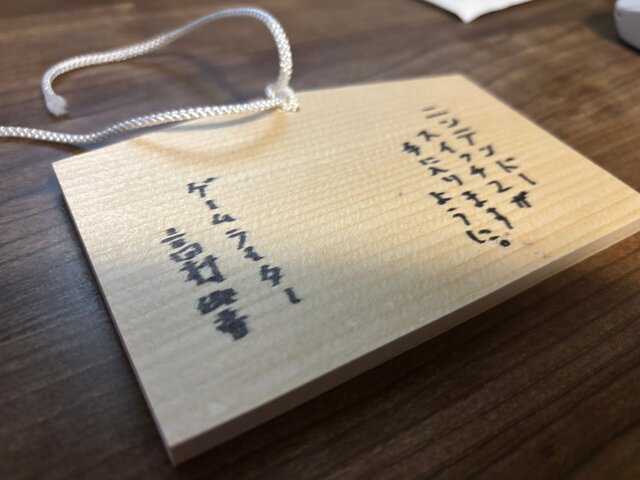 ニンテンドー
スイッチ2が
手に入りますように。
ゲームライター